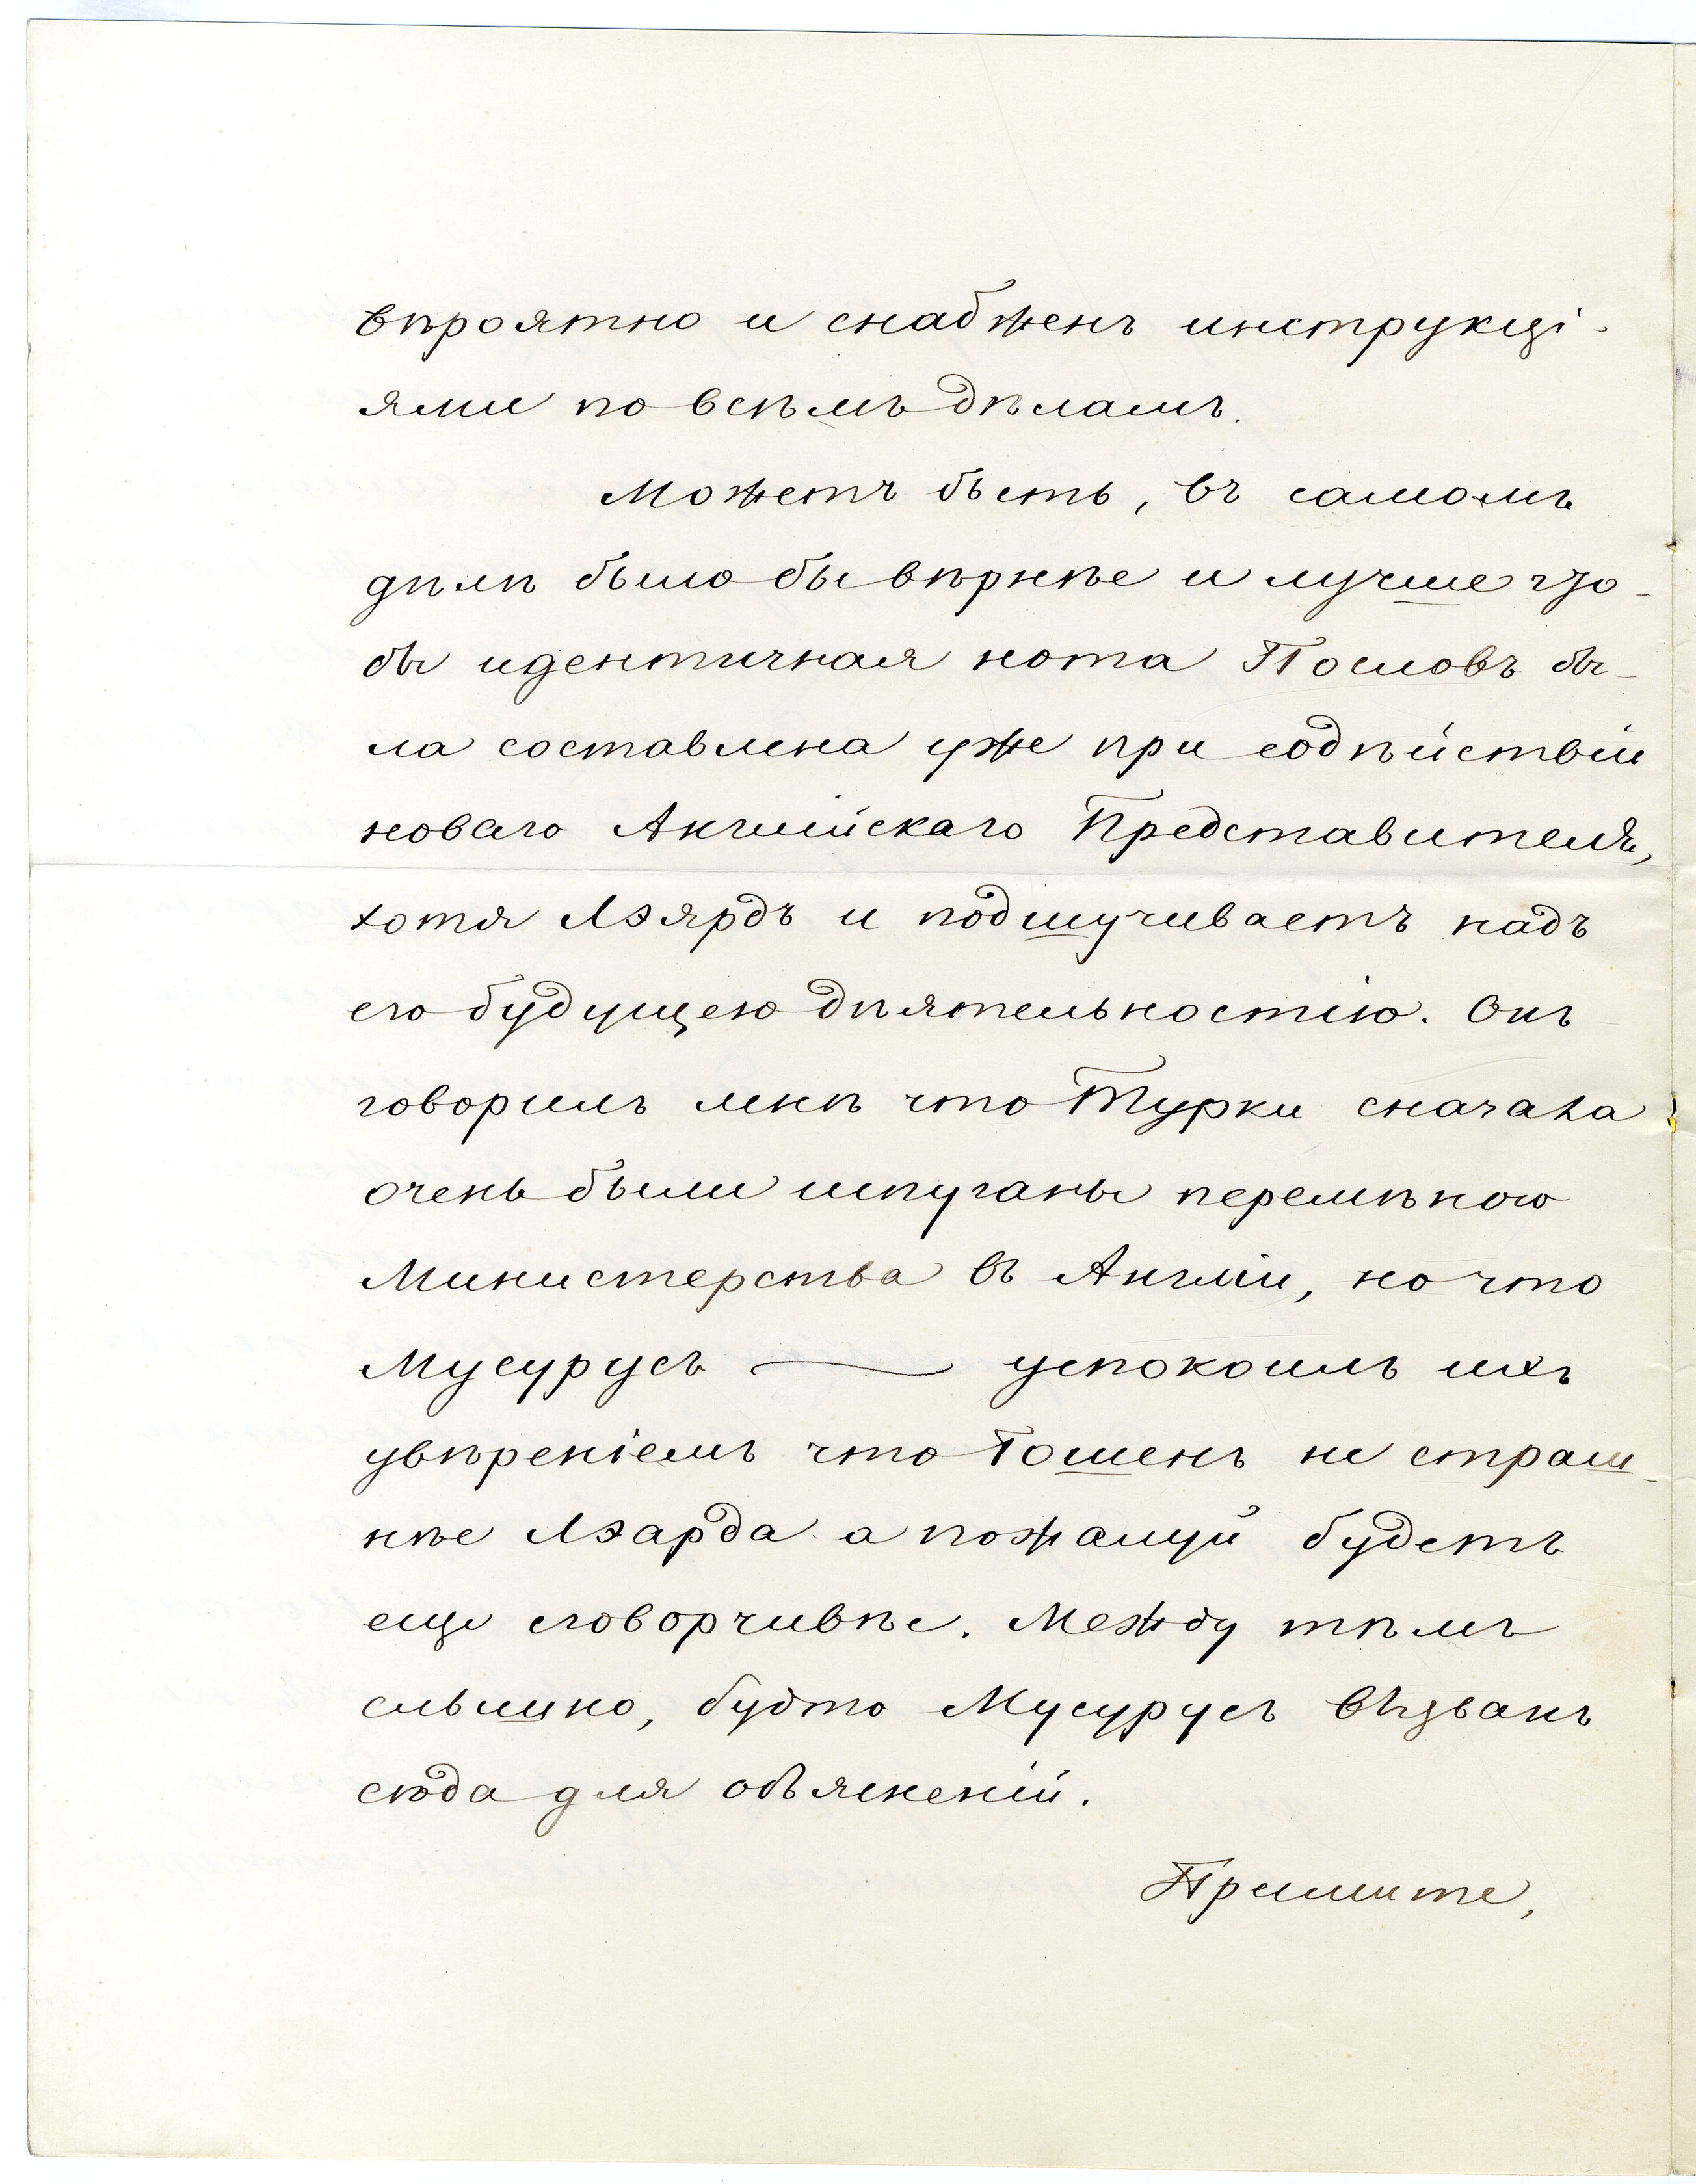 вѣроятно и снабженъ инструкці-
ями по всѣмъ дѣламъ.
Можетъ быть, въ самомъ
дѣлѣ было бы вѣрнѣе и лучше что-
бы идентичная нота Пословъ бы-
ла составлена уже при содѣйствіи
новаго Англійскаго Представителя,
хотя Лэярдъ и подшучиваетъ надъ
его будущею дѣятельностію. Онъ
говорилъ мнѣ что Турки сначала
очень были испуганы перемѣною
Министерства въ Англіи, но что
Мусурусъ — успокоилъ ихъ
увѣреніемъ что Гошенъ не страш-
нѣе Лэарда а пожалуй будетъ
еще сговорчивѣе. Между тѣмъ
слышно, будто Мусурусъ вызванъ
сюда для объясненій.
Примите,